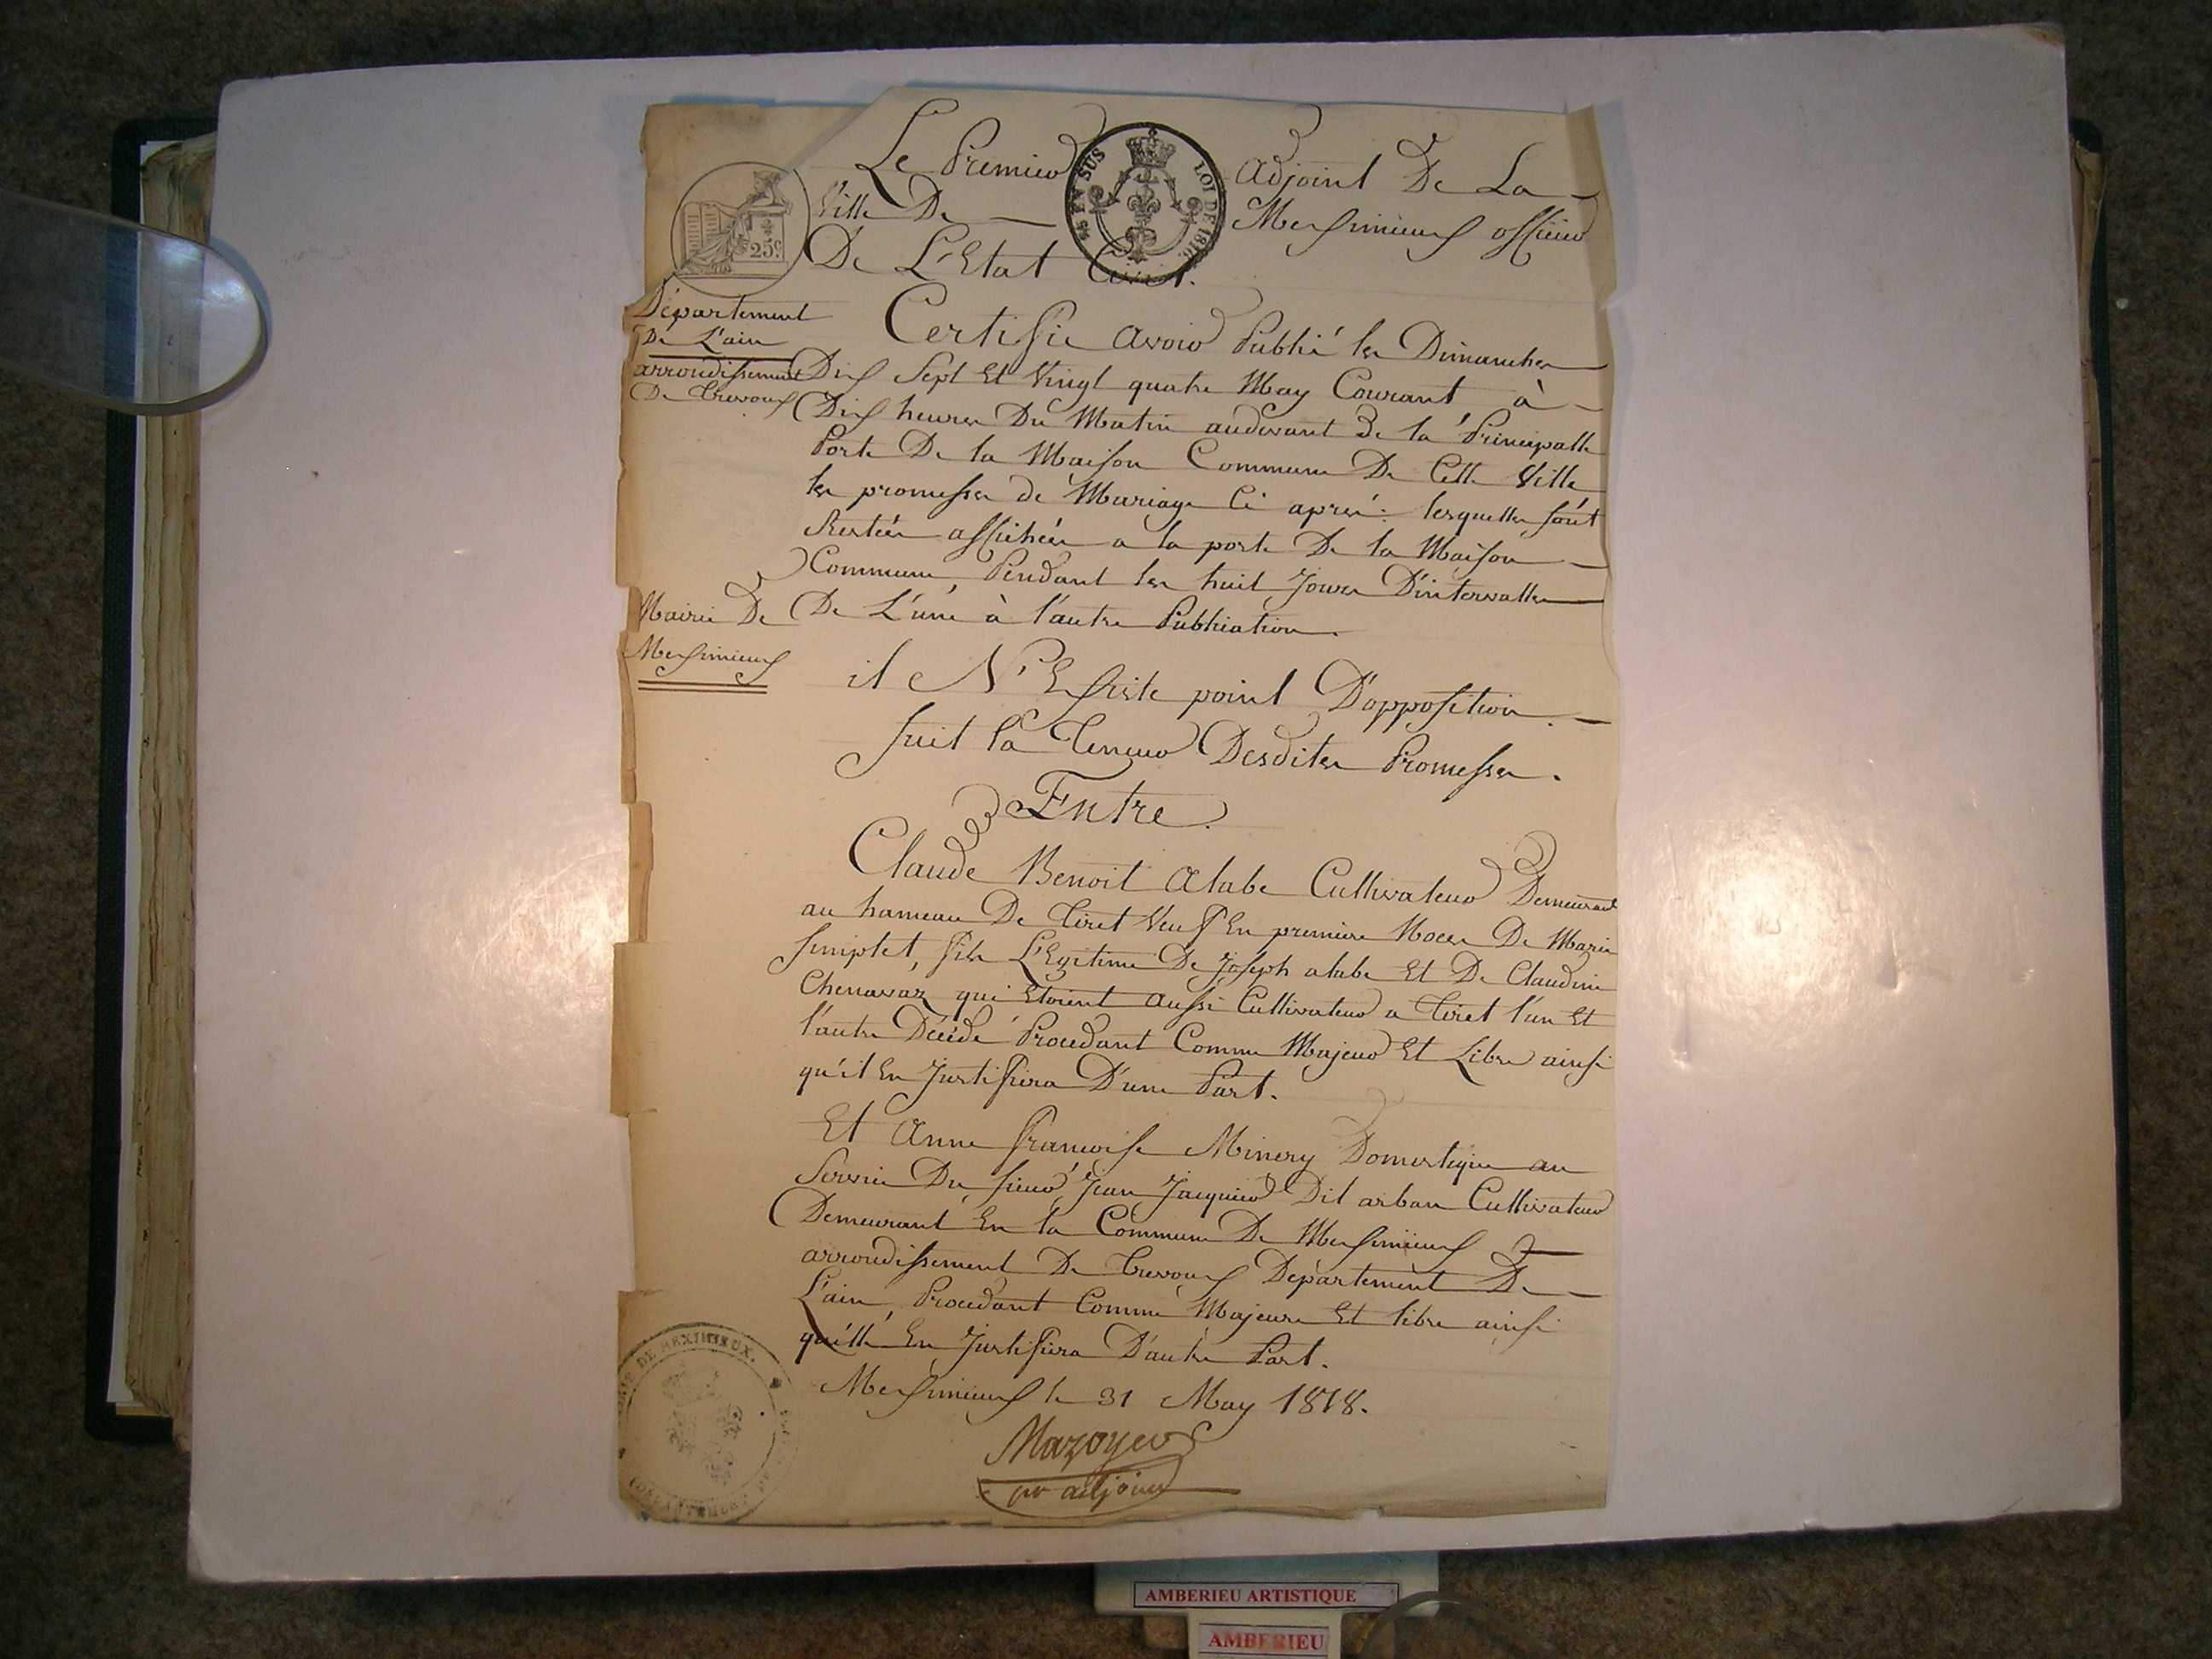 Le Premier adjoint De La
Ville De Meximieux officier
De L'Etat Civil.
EN SUS LOI DE 1816
25c.
Département
De L'ain
arrondissement
De Trevoux
Certifie avoir Publié les Dimanches
Dix Sept Et Vingt quatre May Courant à
Dix heures Du Matin audevant de la Principalle
Porte De la Maison Commune De Cette Ville
les promesses de Mariage Ci aprés: lesquelles sont
Restées affichées a la porte De la Maison
Commune, Pendant les huit Jours D'intervalles
De L'une à l'autre Publiation.
Mairie De
Meximieux
il N'Existe point D'opposition.
suit la Teneur Desdites Promesses.
Entre
Claude Benoit alabe Cultivateur Demeurant
au hameau De Tiret Veuf En premiere Noces De Marie
simplet, fils L'Egitime De Joseph alabe Et De Claudine
Chenavaz qui Etoient aussi Cultivateur a Tiret l'un Et
l'autre Décédé Procedant Comme Majeur Et Libre ainsi
qu'il En Justifiera D'une Part.
Et anne francoise Minery Domestique au
Service Du sieur Jean Jacquier Dit arban Cultivateur
Demeurant En la Commune De Meximieux
arrondissement De Trevoux Département De
L'ain, Procedant Comme Majeure Et libre ainsi
qu'elle En Justifiera D'autre Part.
Meximieux le 31 May 1818.
Mazoyer
per adjoint
DE MEXIMIEUX.
AMBERIEU ARTISTIQUE
AMBERIEU